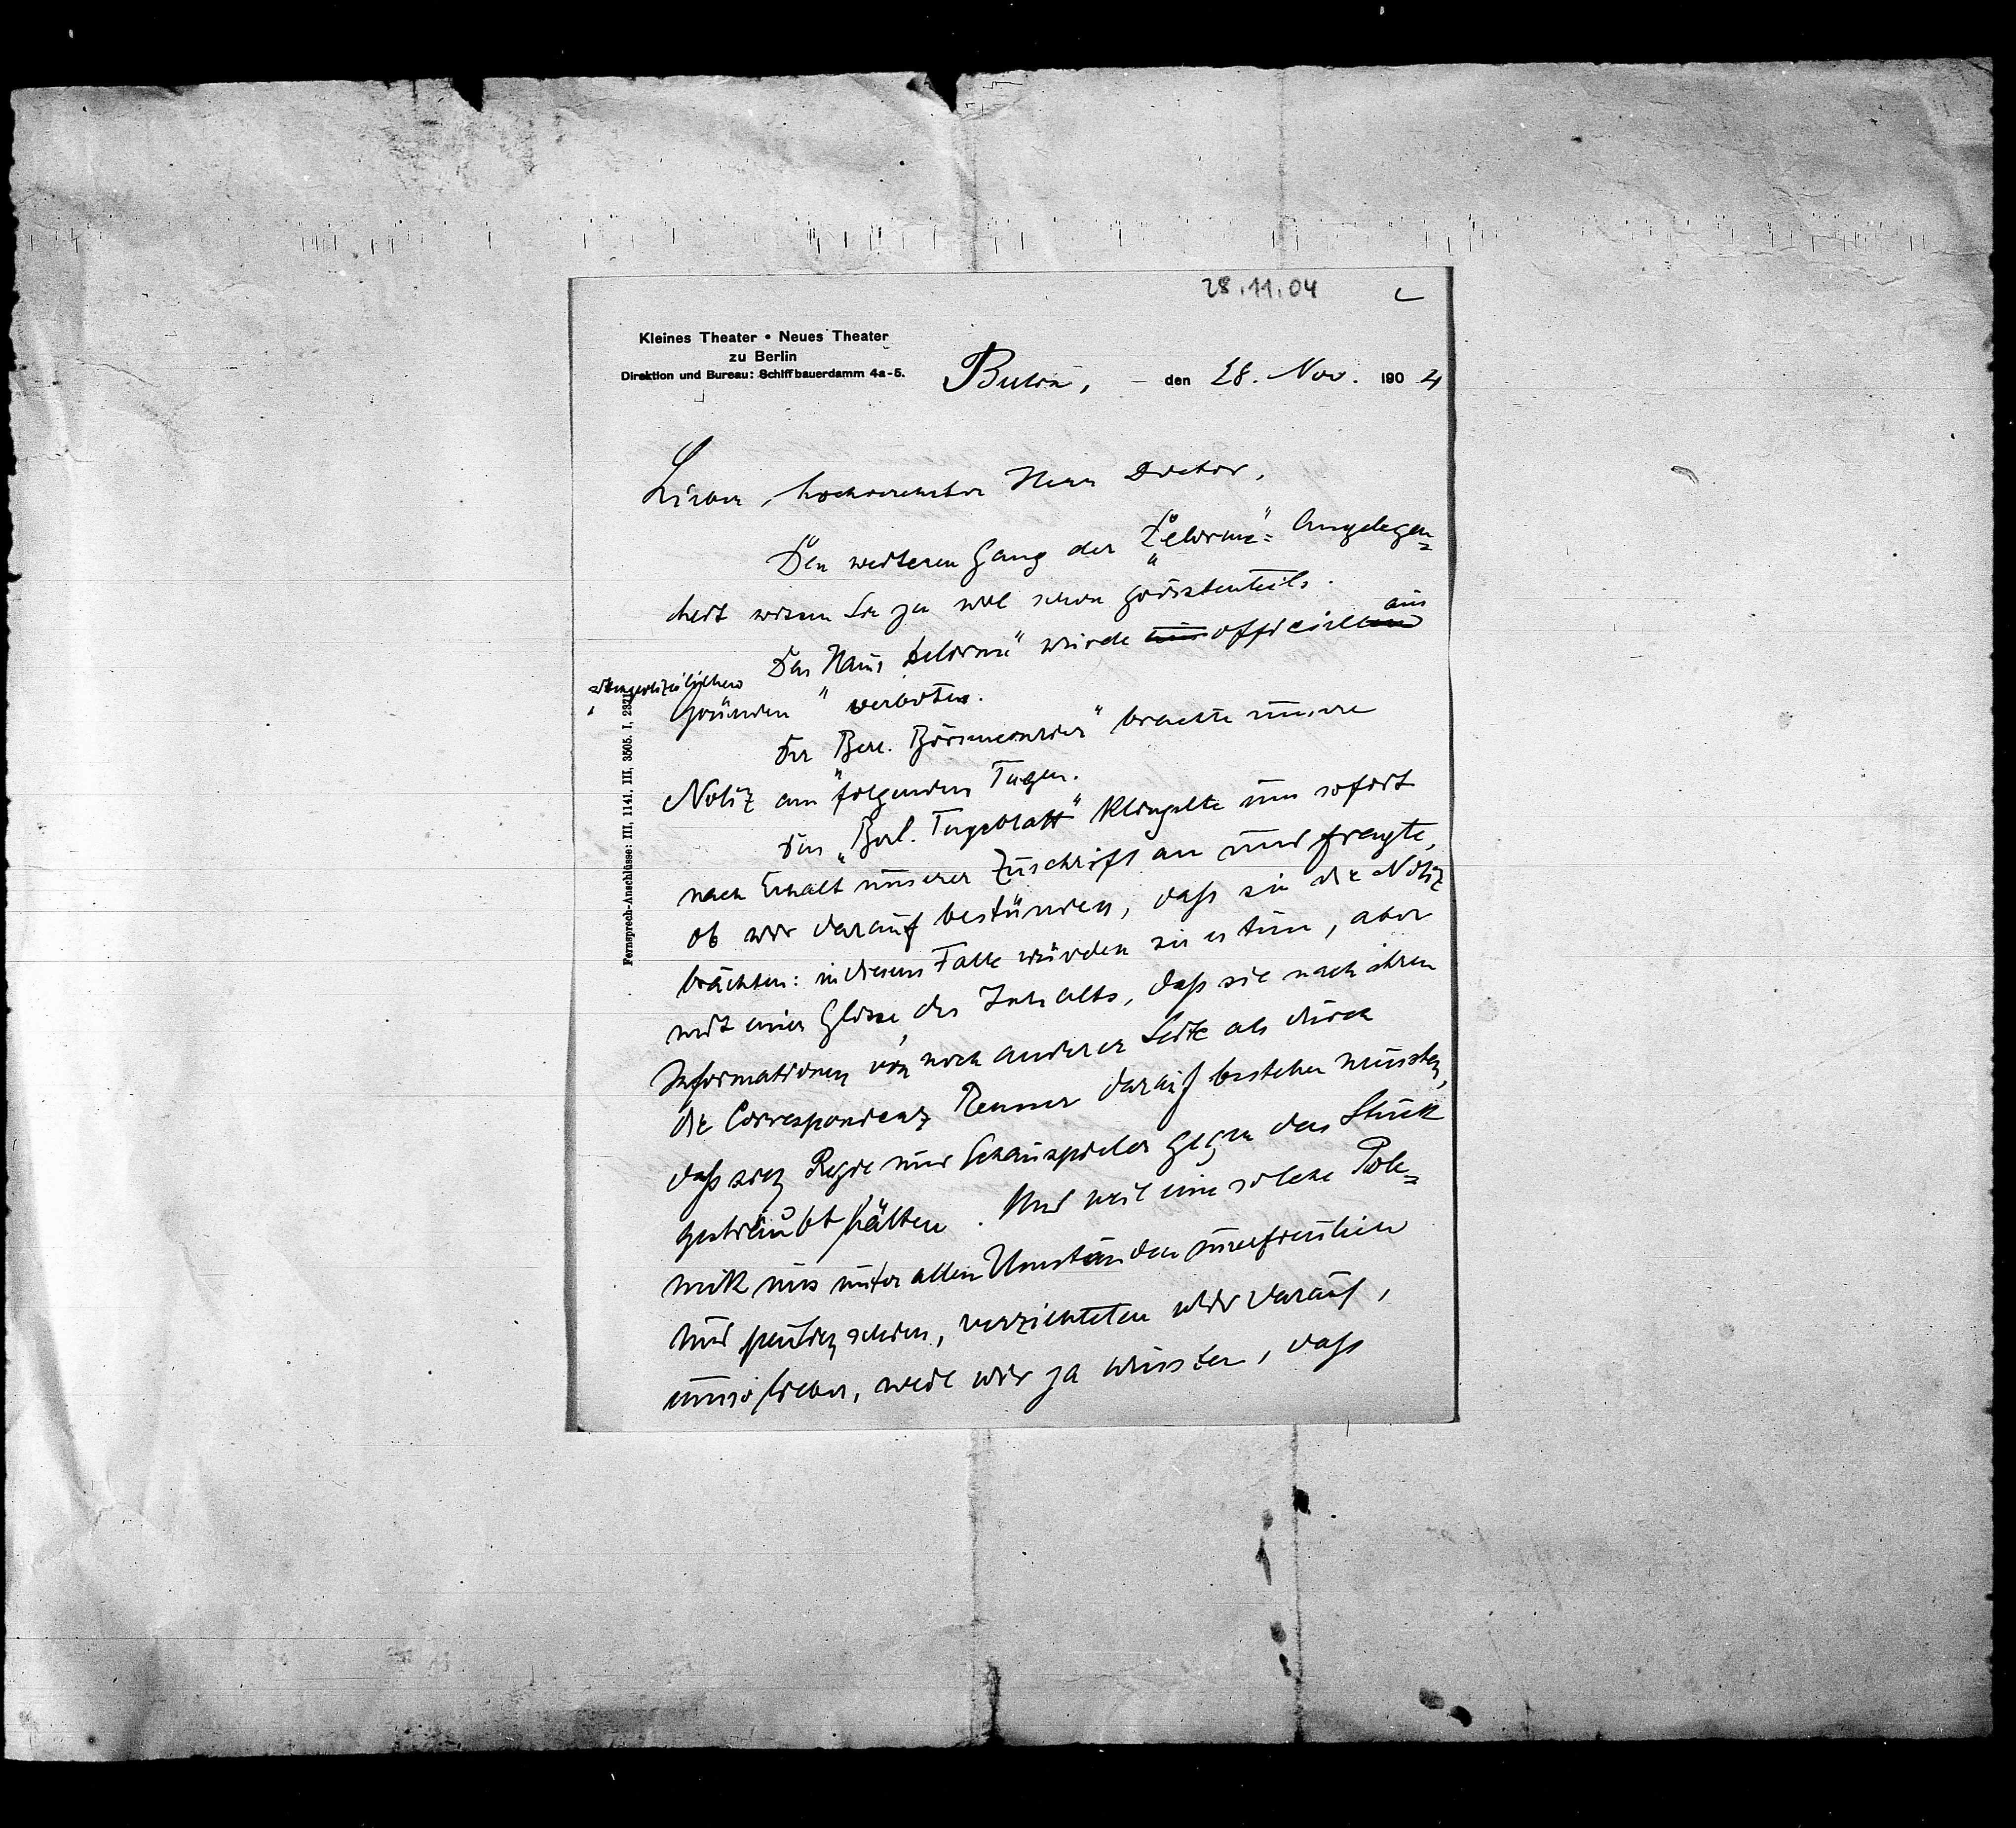 28.11.04
Kleines Theater • Neues Theater
zu Berlin
Direktion und Bureau: Schiffbauerdamm 4a-5.
Berlin, den 28. Nov. 1904
Fernsprech-Anschlüsse: III, 1141, III, 3505, I, 2371
Lieber, hochverehrter Herr Doctor,
Den weiteren Gang der „Delorme“= Angelegen=
heit wissen Sie ja wol schon grösstenteils.
Das Haus Delorme“ wurde officiell aus
„sittenpolizeilichen
Gründen“ verboten.
Der „Berl. Börsencourier“ brachte unsere
Notiz am folgenden Tage.
Das „Berl. Tageblatt“ klingelte uns sofort
nach Erhalt unserer Zuschrift an und fragte,
ob wir darauf bestünden, dass sie die Notiz
brächten: in diesem Falle würden sie es tun, aber
mit einer Glosse des Inhalts, dass sie nach ihren
Informationen von noch anderer Seite als durch
die Correspondenz Renner darauf bestehen müssten,
dass sich Regie und Schauspieler gegen das Stück
gesträubt hätten. Und weil eine solche Pole=
mik uns unter allen Umständen unerfreulich
und schien, verzichteten wir darauf,
umso lieber, weil wir ja wussten, dass